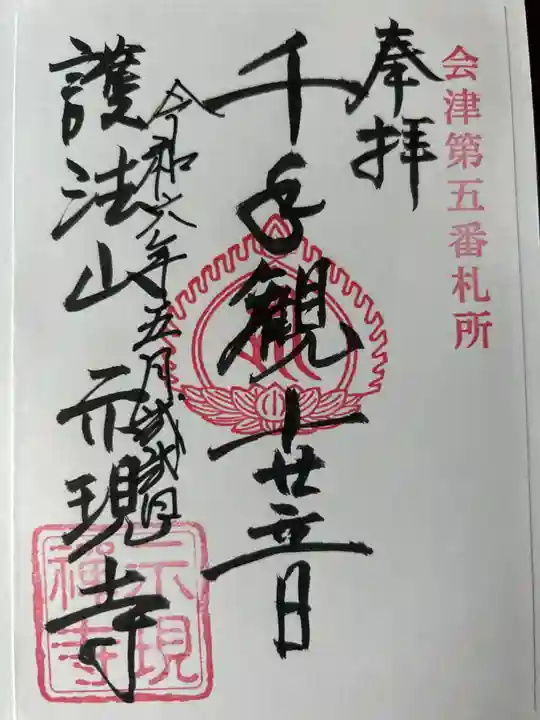 会津第五番札所
奉拝
千手観世音
令和六年五月弐弐日
護法山示現寺
示現
禅寺